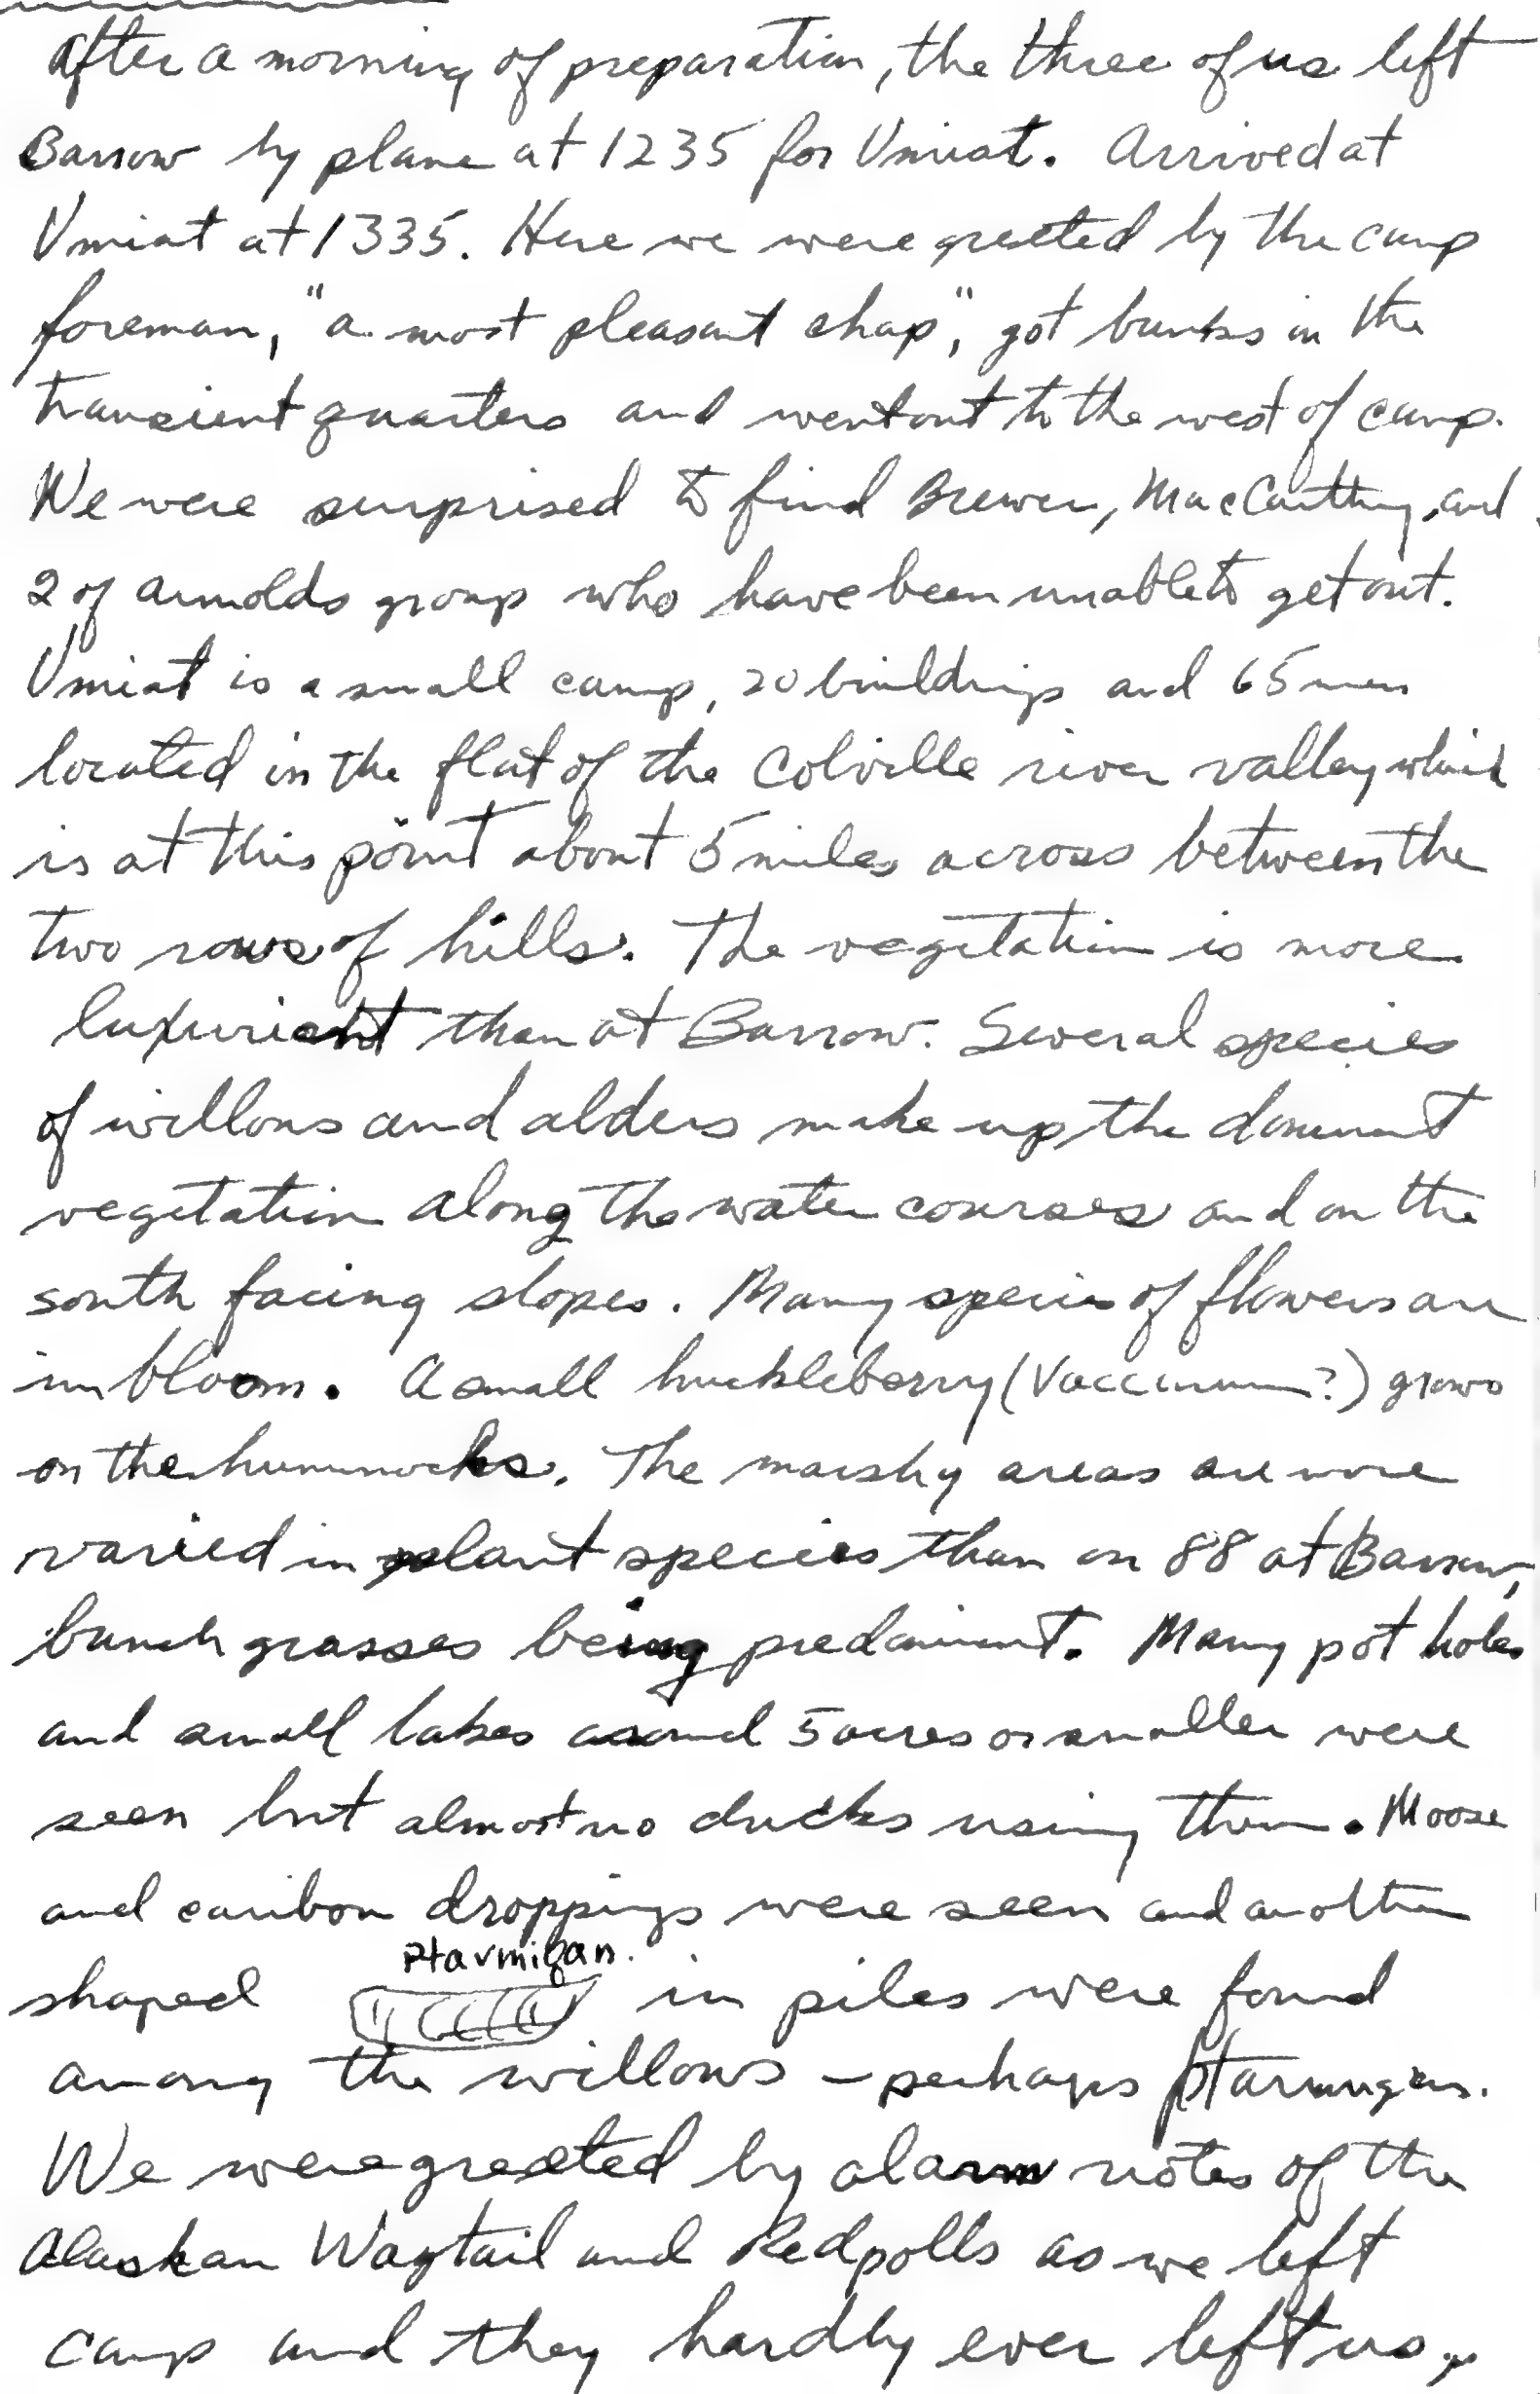 After a morning of preparation, the three of us left
Barrow by plane at 1235 for Umiat. Arrived at
Umiat at 1335. Here we were greeted by the camp
foreman, "a most pleasant chap", got bunks in the
transient quarters and went out to the west of camp.
We were surprised to find Brewer, MacCarthy, and
2 of Arnolds group who have been unable to get out.
Umiat is a small camp, 20 buildings and 65 men
located in the flat of the Colville river valley which
is at this point about 5 miles across between the
two rows of hills. The vegetation is more
luxuriant than at Barrow. Several species
of willows and alders make up the dominant
vegetation along the water courses and on the
south facing slopes. Many species of flowers are
in bloom. A small huckleberry (Vaccinium?) grows
on the hummocks. The marshy areas are more
varied in plant species than on 88 at Barrow,
bunch grasses being predominant. Many pot holes
and small lakes around 5 acres or smaller were
seen but almost no ducks using them. Moose
and caribou droppings were seen and another
Ptarmigan.
shaped in piles were found
among the willows - perhaps ptarmigan.
We were greeted by alarm notes of the
Alaskan Wagtail and Redpolls as we left
camp and they hardly ever left us,